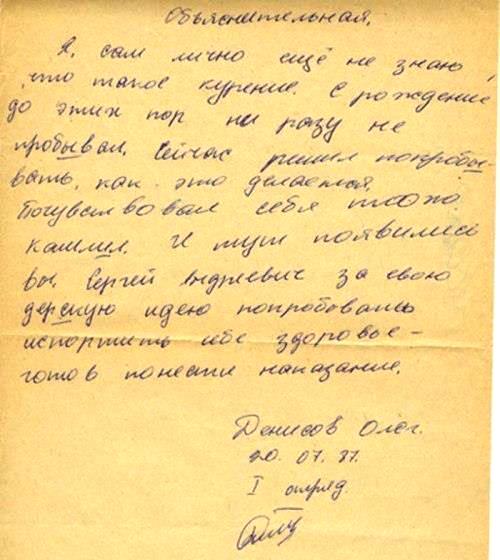 Объяснительная.
Я, сам лично ещё не знаю,
что такое курение. С рождение
до этих пор ни разу не
пробывал. Сейчас решил попробы-
вать, как это делается.
Почувствовал себя плохо
кашлил. И тут появились
вы. Сергей Андреевич за свою
дерскую идею попробовать
испортить себе здоровье –
готов понести наказание.
Денисов Олег.
20. 07. 87.
I отряд.